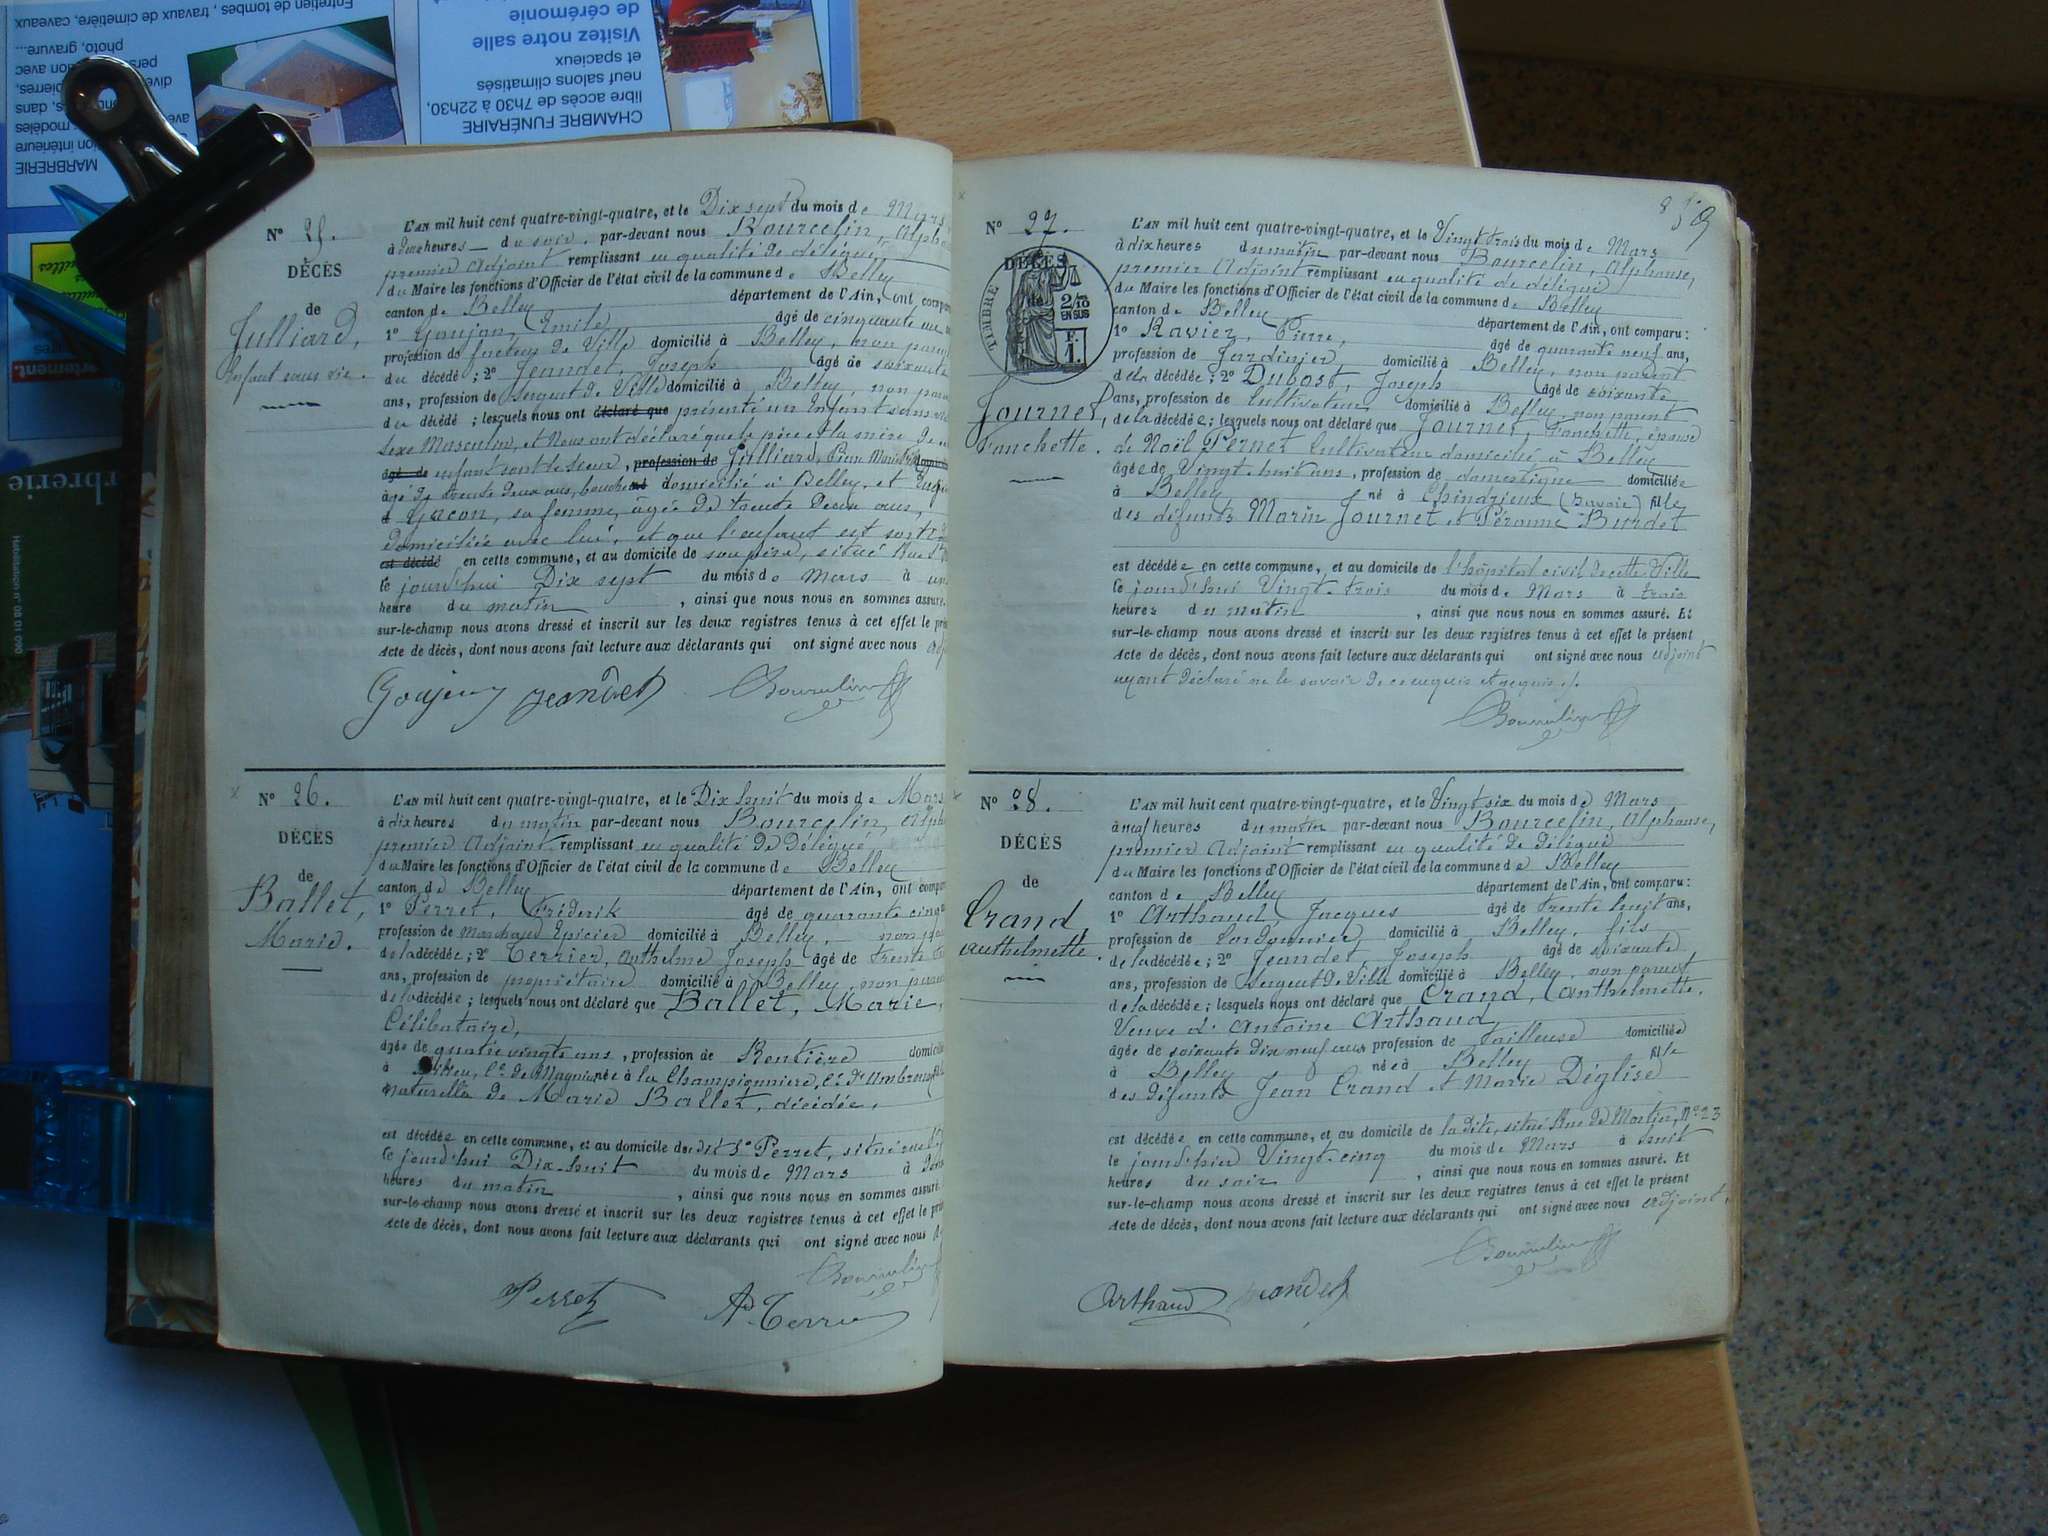 Entretien de tombes, travaux de cimetière, caveaux
photo, gravure...
MARBRERIE
Visitez notre salle
de cérémonie
CHAMBRE FUNÉRAIRE
libre accès de 7h30 à 22h30,
neuf salons climatisés
et spacieux
N° 25.
DÉCÈS
de
Julliard,
Enfant sans vie.
L'AN mil huit cent quatre-vingt-quatre, et le Dix sept du mois de Mars
à heures du soir par-devant nous Bourcelin,
premier Adjoint remplissant en qualité de délégué
du Maire les fonctions d'Officier de l'état civil de la commune de Belley
canton de Belley département de l'Ain, ont
1° Goujon, Emile âgé de cinquante
profession de facteur de Ville domicilié à Belley, non
du décédé; 2° Jeandet, Joseph âgé de soixante
ans, profession de Sergent de Ville domicilié à Belley, non
du décédé; lesquels nous ont déclaré que présenté un Enfant sans
sexe Masculin, et Nous ont déclaré que le père et la mère
âgé de enfant sont le sieur, profession de Julliard,
âgé de trente deux ans, boucher domicilié à Belley, et
Gacon, sa femme, âgée de trente deux ans,
domiciliée avec lui, et que l'enfant est sorti
est décédé en cette commune, et au domicile de son père, situé Rue
le jourd'hui Dix sept du mois de Mars à une
heure du matin, ainsi que nous nous en sommes assuré.
sur-le-champ nous avons dressé et inscrit sur les deux registres tenus à cet effet le
acte de décès, dont nous avons fait lecture aux déclarants qui ont signé avec nous
Goujon Jeandet Bourcelin
N° 26.
DÉCÈS
de
Ballet,
Marie.
L'AN mil huit cent quatre-vingt-quatre, et le Dix huit du mois de Mars
à dix heures du matin par-devant nous Bourcelin,
premier Adjoint remplissant en qualité de Délégué
du Maire les fonctions d'Officier de l'état civil de la commune de Belley
canton de Belley département de l'Ain, ont
1° Perret, Fréderik âgé de quarante cinq
profession de Marchand Epicier domicilié à Belley, non
de la décédée; 2° Terrier, Anthelme Joseph âgé de trente
ans, profession de propriétaire domicilié à Belley, non
de la décédée; lesquels nous ont déclaré que Ballet, Marie,
Célibataire,
âgée de quatre vingts ans, profession de Rentière
à née à la Championnière,
naturelle de Marie Ballet, décédée,
est décédée en cette commune, et au domicile du dit Sr Perret, situé rue
le jourd'hui Dix-huit du mois de Mars à
heures du matin, ainsi que nous nous en sommes assuré.
sur-le-champ nous avons dressé et inscrit sur les deux registres tenus à cet effet le
acte de décès, dont nous avons fait lecture aux déclarants qui ont signé avec nous
Bourcelin
Perret A. Terrier
N° 27.
DÉCÈS
de
TIMBRE
2/10
EN SUS
F.
1.
Journet,
Fanchette.
L'AN mil huit cent quatre-vingt-quatre, et le Vingt trois du mois de Mars
à dix heures du matin par-devant nous Bourcelin, Alphonse,
premier Adjoint remplissant en qualité de délégué
du Maire les fonctions d'Officier de l'état civil de la commune de Belley
canton de Belley département de l'Ain, ont comparu:
1° Ravier, Pierre, âgé de quarante neuf ans,
profession de Jardinier domicilié à Belley, non parent
de la décédée; 2° Dubost, Joseph âgé de soixante
ans, profession de Cultivateur domicilié à Belley, non parent
de la décédée; lesquels nous ont déclaré que Journet, Fanchette, épouse
de Noël Pernet Cultivateur domicilié à Belley
âgée de Vingt-huit ans, profession de domestique domiciliée
à Belley né à Chindrieux (Savoie) fille
des défunts Marin Journet et Péronne Burdet
est décédée en cette commune, et au domicile de l'hôpital civil de cette Ville
le jourd'hui Vingt-trois du mois de Mars à trois
heures du matin, ainsi que nous nous en sommes assuré. Et
sur-le-champ nous avons dressé et inscrit sur les deux registres tenus à cet effet le présent
acte de décès, dont nous avons fait lecture aux déclarants qui ont signé avec nous adjoint
ayant déclaré ne le savoir de ce enquis et requis
Bourcelin
N° 28.
DÉCÈS
de
Crand
Anthelmette.
L'AN mil huit cent quatre-vingt-quatre, et le Vingt six du mois de Mars
à neuf heures du matin par-devant nous Bourcelin, Alphonse,
premier Adjoint remplissant en qualité de délégué
du Maire les fonctions d'Officier de l'état civil de la commune de Belley
canton de Belley département de l'Ain, ont comparu:
1° Arthaud, Jacques âgé de trente huit ans,
profession de Cordonnier domicilié à Belley, fils
de la décédée; 2° Jeandet, Joseph âgé de soixante
ans, profession de Sergent de Ville domicilié à Belley, non parent
de la décédée; lesquels nous ont déclaré que Crand, Anthelmette,
Veuve d'Antoine Arthaud,
âgée de soixante dix neuf ans profession de Tailleuse domiciliée
à Belley née à Belley fille
des défunts Jean Crand et Marie Déglise
est décédée en cette commune, et au domicile de la dite, situé Rue de N° 23
le jourd'hier Vingt-cinq du mois de Mars à huit
heures du soir, ainsi que nous nous en sommes assuré. Et
sur-le-champ nous avons dressé et inscrit sur les deux registres tenus à cet effet le présent
acte de décès, dont nous avons fait lecture aux déclarants qui ont signé avec nous adjoint.
Bourcelin
Arthaud Jeandet